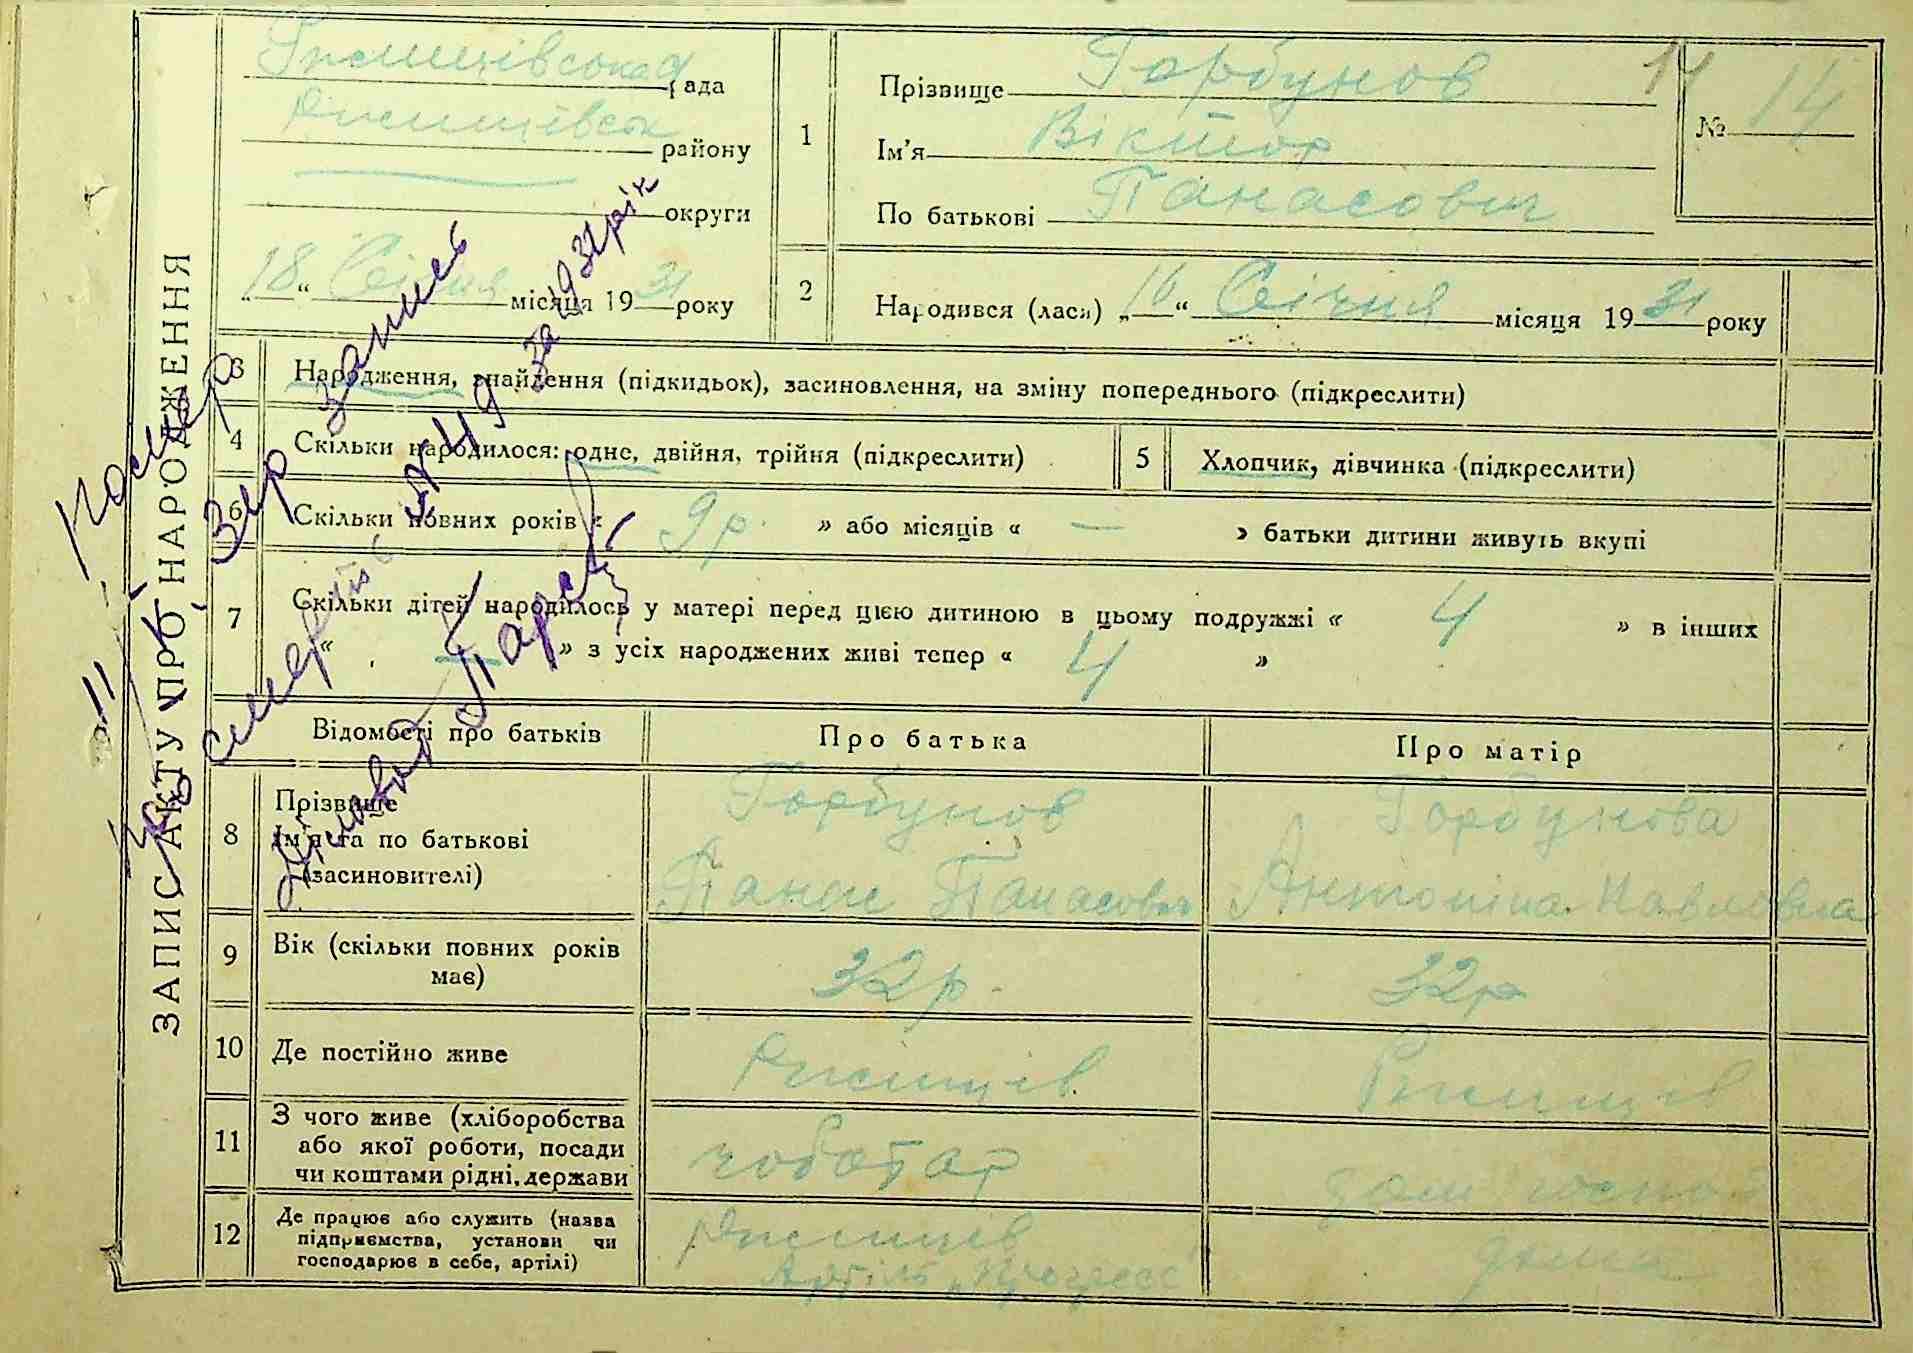 ЗАПИС АКТУ ПРО НАРОДЖЕННЯ
Ржищівська рада
Ржищівськ району
округи
„18“ Січня місяця 1931 року
1
Прізвище Горбунов
Ім’я Віктор
По батькові Панасович
14
№ 14
2
Народився (лася) „16“ Січня місяця 1931 року
3 Народження, знайдення (підкидьок), засиновлення, на зміну попереднього (підкреслити)
4 Скільки народилося: одне, двійня, трійня (підкреслити)
5 Хлопчик, дівчинка (підкреслити)
6 Скільки повних років « 9 р. » або місяців « — » батьки дитини живуть вкупі
7 Скільки дітей народилось у матері перед цією дитиною в цьому подружжі « 4 » в інших
« — » з усіх народжених живі тепер « 4 »
Відомості про батьків
Про батька
Про матір
8 Прізвище
Ім’я та по батькові
(засиновителі)
Горбунов
Панас Панасович
Горбунова
Антоніна Павловна
9 Вік (скільки повних років
має)
32 р.
32 р
10 Де постійно живе
Ржищів
Ржищів
11 З чого живе (хліборобства
або якої роботи, посади
чи коштами рідні, держави
чоботар
дом госпо
12 Де працює або служить (назва
підприємства, установи чи
господарює в себе, артілі)
Ржищів
Артіль „Прогресс“
дома
Помер
Зер запис
смерть № 49 за 1931 рік